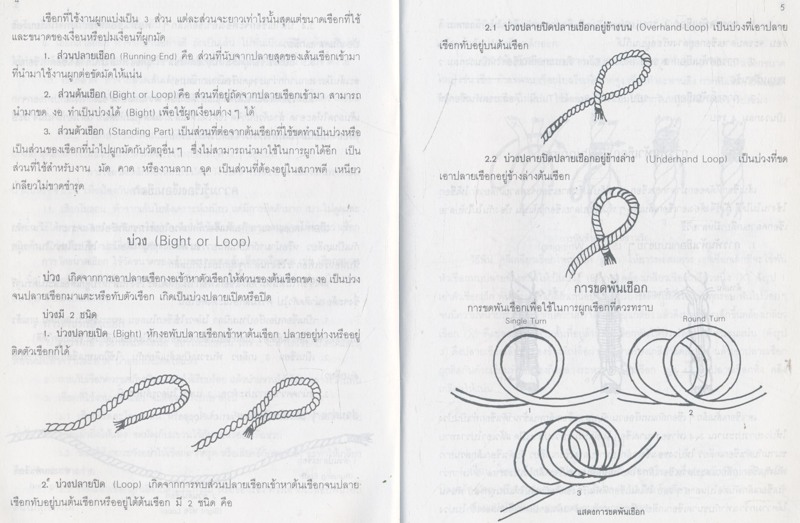 เชือกที่ใช้งานผูกแบ่งเป็น 3 ส่วน แต่ละส่วนจะยาวเท่าไรนั้นสุดแต่ขนาดเชือกที่ใช้
และขนาดของเงื่อนหรือปมเงื่อนที่ผูกมัด
1. ส่วนปลายเชือก (Running End) คือ ส่วนที่นับจากปลายสุดของเส้นเชือกเข้ามา
ที่นำมาใช้งานผูกต่อขัดมัดให้แน่น
2. ส่วนต้นเชือก (Bight or Loop) คือ ส่วนที่อยู่ถัดจากปลายเชือกเข้ามา สามารถ
นำมาขด งอ ทำเป็นบ่วงได้ (Bight) เพื่อใช้ผูกเงื่อนต่าง ๆ ได้
3. ส่วนตัวเชือก (Standing Part) เป็นส่วนที่ต่อจากต้นเชือกที่ใช้ขดทำเป็นบ่วงหรือ
เป็นส่วนของเชือกที่นำไปผูกมัดกับวัตถุอื่น ๆ ซึ่งไม่สามารถนำมาใช้ในการผูกได้อีก เป็น
ส่วนที่ใช้สำหรับงาน มัด คาด หรืองานลาก ฉุด เป็นส่วนที่ต้องอยู่ในสภาพดี เหนียว
เกลียวไม่ขาดชำรุด
บ่วง (Bight or Loop)
บ่วง เกิดจากการเอาปลายเชือกงอเข้าหาตัวเชือกให้ส่วนของต้นเชือกขด งอ เป็นบ่วง
จนปลายเชือกมาแตะหรือทับตัวเชือก เกิดเป็นบ่วงปลายเปิดหรือปิด
บ่วงมี 2 ชนิด
1. บ่วงปลายเปิด (Bight) หักงอพับปลายเชือกเข้าหาต้นเชือก ปลายอยู่ห่างหรืออยู่
ติดตัวเชือกก็ได้
2. บ่วงปลายปิด (Loop) เกิดจากการทบส่วนปลายเชือกเข้าหาต้นเชือกจนปลาย
เชือกทับอยู่บนต้นเชือกหรืออยู่ใต้ต้นเชือก มี 2 ชนิด คือ
5
2.1 บ่วงปลายปิดปลายเชือกอยู่ข้างบน (Overhand Loop) เป็นบ่วงที่เอาปลาย
เชือกทับอยู่บนต้นเชือก
2.2 บ่วงปลายปิดปลายเชือกอยู่ข้างล่าง (Underhand Loop) เป็นบ่วงที่ขด
เอาปลายเชือกอยู่ข้างล่างต้นเชือก
การขดพันเชือก
การขดพันเชือกเพื่อใช้ในการผูกเชือกที่ควรทราบ
Single Turn
Round Turn
1
2
3
แสดงการขดพันเชือก